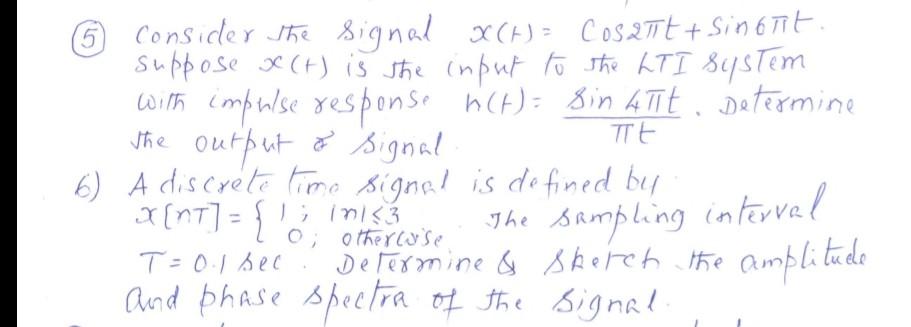 ⑤ Consider the signal x(t) = Cos2πt + Sin6πt.
suppose x(t) is the input to the LTI System
with impulse response h(t) = Sin 4πt / πt . Determine
the output signal.
6) A discrete time signal is defined by
x[nT] = { 1 ; |n|≤3 . The sampling interval
0 ; otherwise
T = 0.1 sec . Determine & Sketch the amplitude
and phase spectra of the signal.